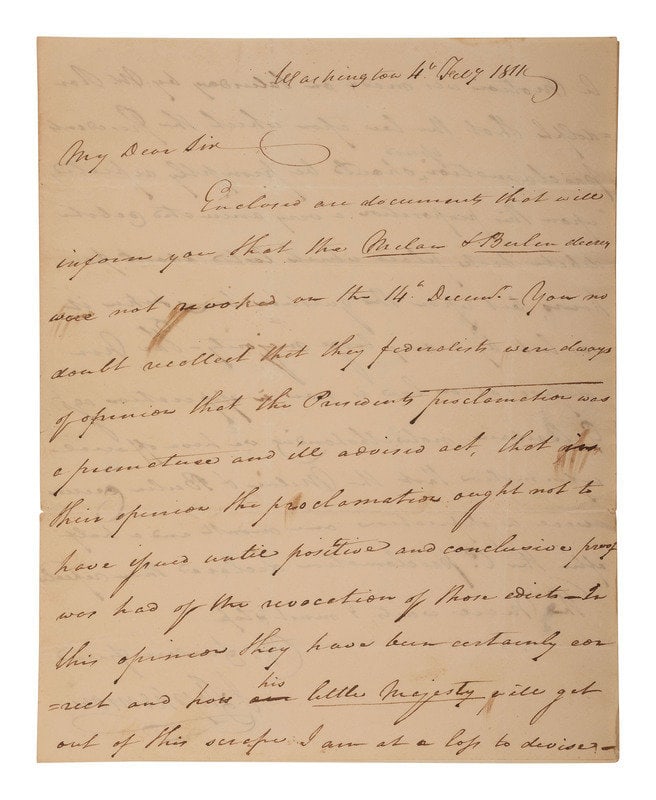 Washington 4th Feby 1811
My Dear Sir
Enclosed are documents that will
inform you that the Milan & Berlin decrees
were not revoked on the 14th Decemr. You no
doubt recollect that they federalists were always
of opinion that the Presidents proclamation was
a premature and ill advised act, that in
their opinion the proclamation ought not to
have issued until positive and conclusive proof
was had of the revocation of those edicts – In
this opinion they have been certainly cor
=rect and how his little Majesty will get
out of this scrape I am at a loss to devise –